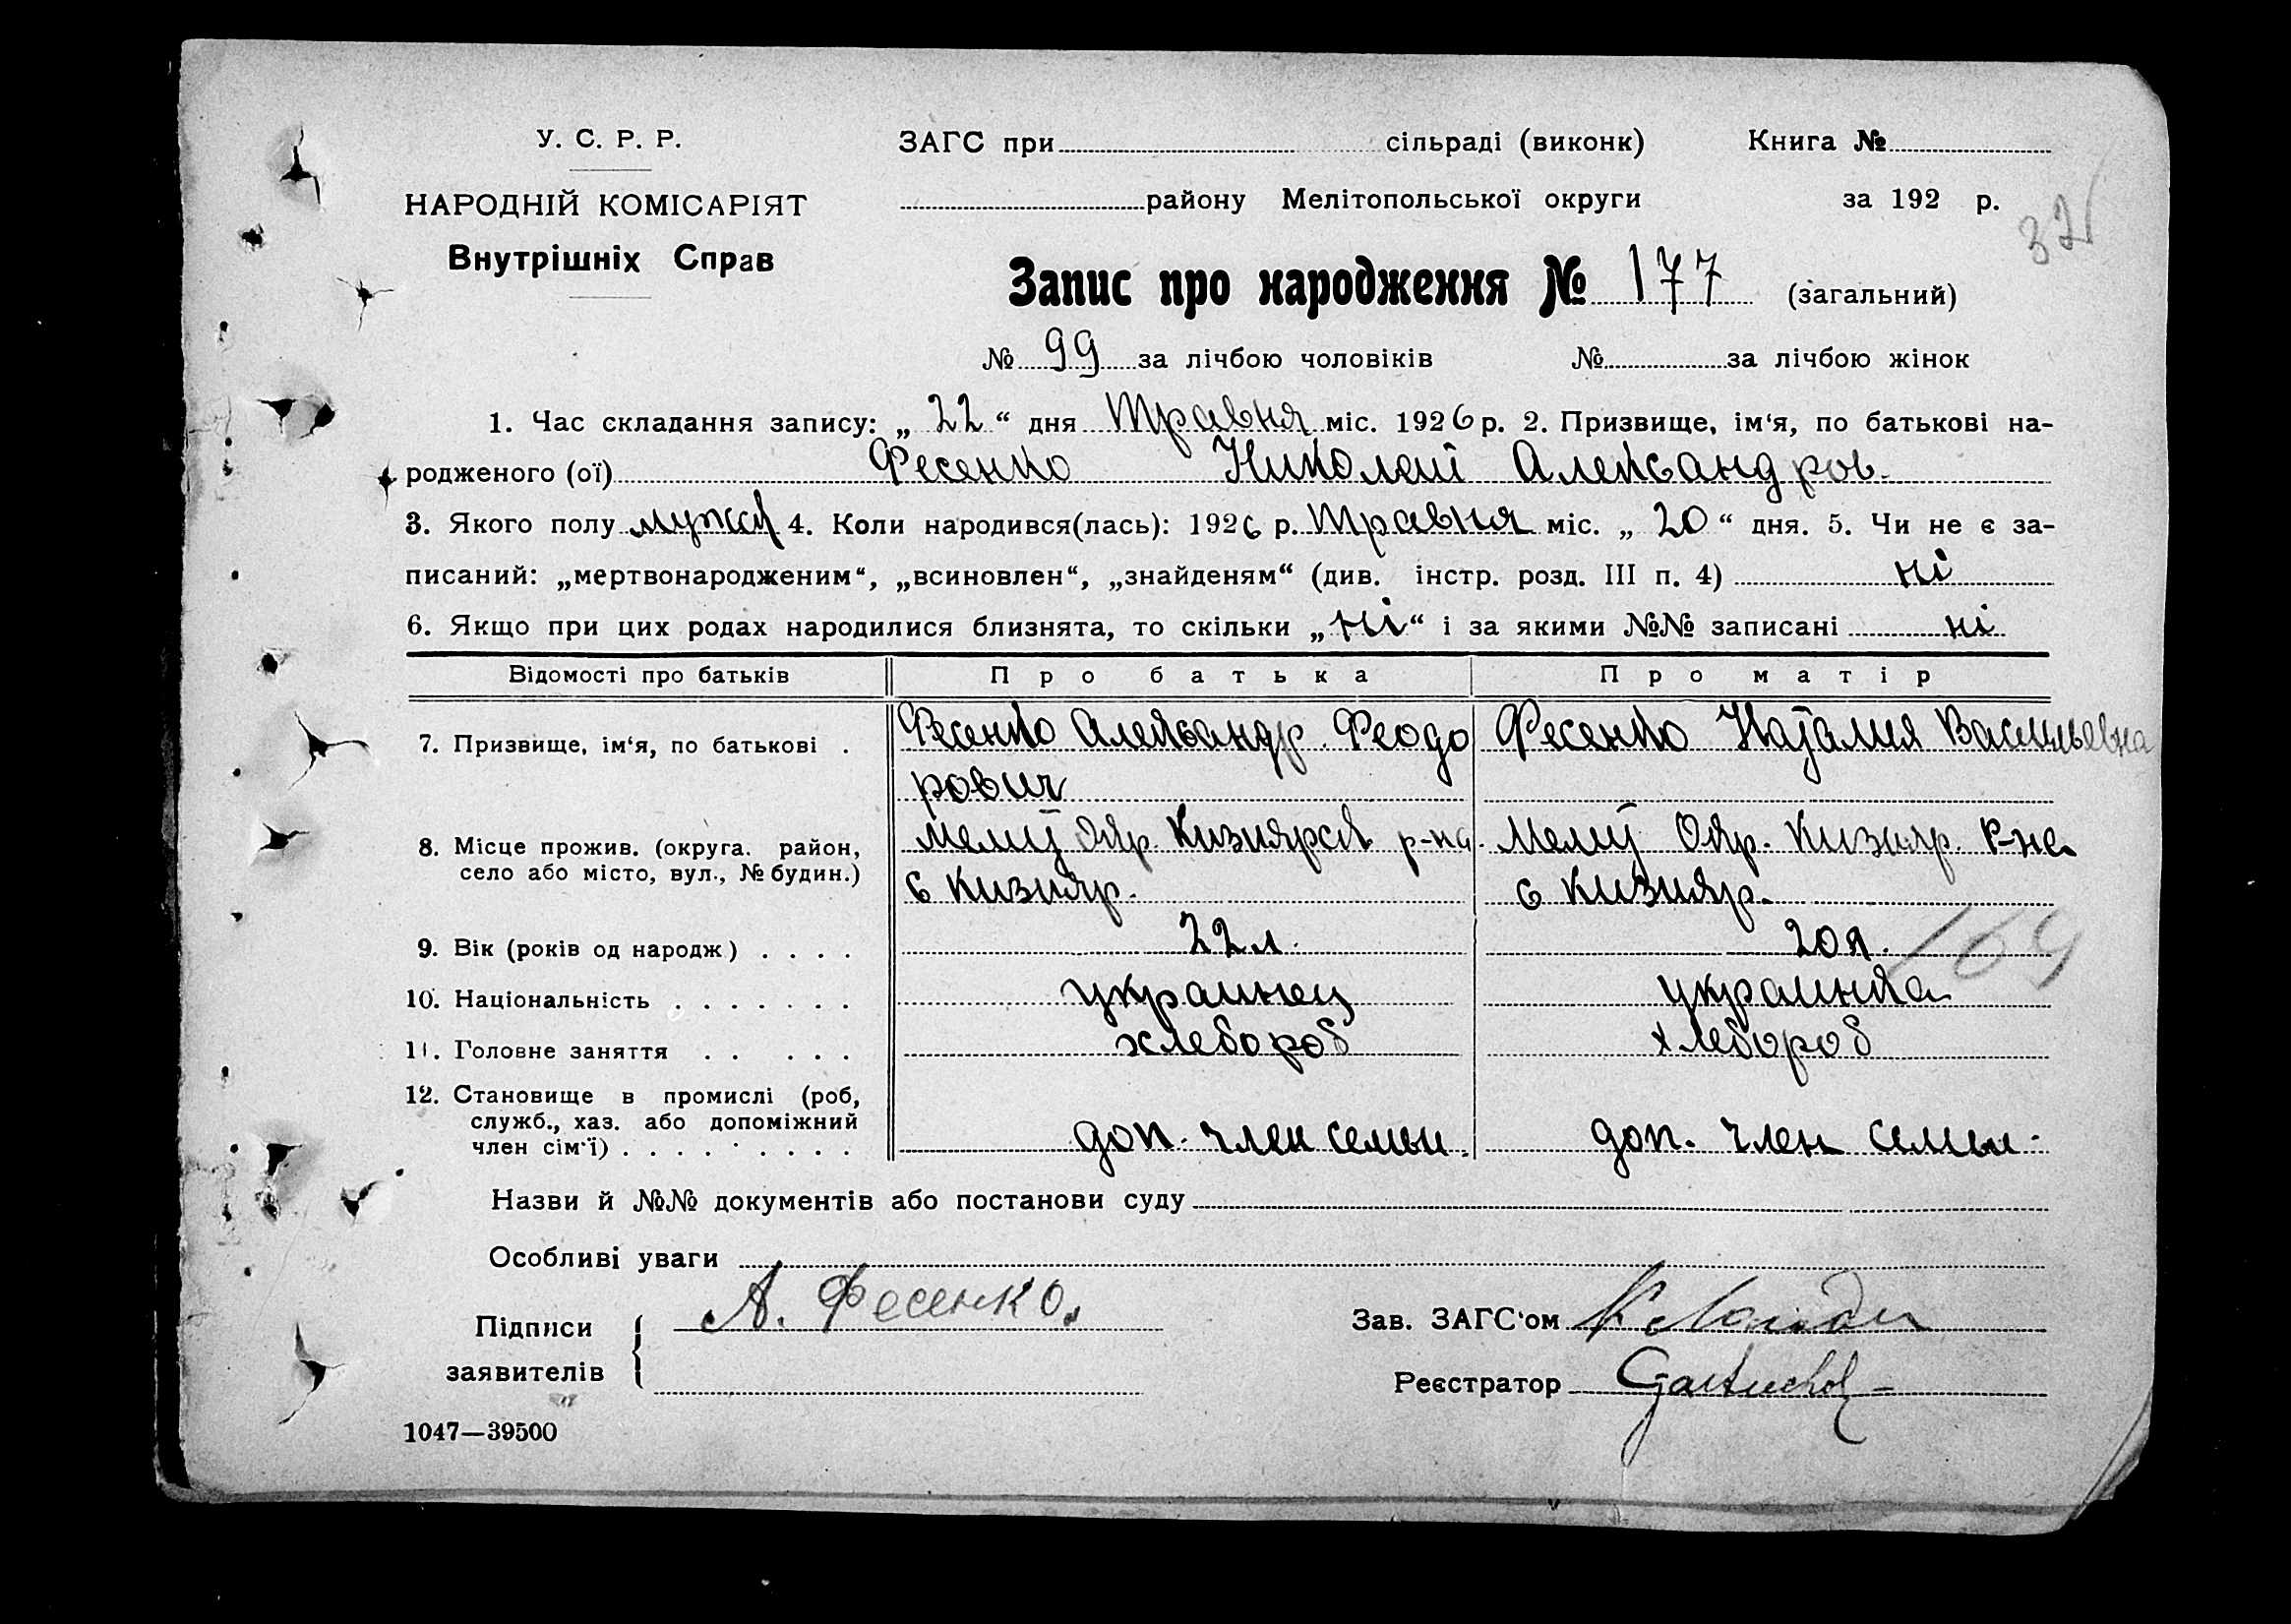 У. С. Р. Р.
ЗАГС при сільраді (виконк) Книга №
НАРОДНІЙ КОМІСАРІЯТ
району Мелітопольської округи за 192 р.
32
Внутрішніх Справ
Запис про народження № 177 (загальний)
№ 99 за лічбою чоловіків № за лічбою жінок
1. Час складання запису: „ 22 “ дня Травня міс. 1926 р. 2. Призвище, ім‘я, по батькові на-
родженого (ої) Фесенко Николай Александров.
3. Якого полу мужск 4. Коли народився(лась): 1926 р. Травня міс. „ 20 “ дня. 5. Чи не є за-
писаний: „мертвонародженим“, „всиновлен“, „знайденям“ (див. інстр. розд. III п. 4) ні
6. Якщо при цих родах народилися близнята, то скільки „ні“ і за якими №№ записані ні
Відомості про батьків Про батька Про матір
7. Призвище, ім‘я, по батькові . Фесенко Александр Феодо Фесенко Наталия Васильевна
рович
8. Місце прожив. (округа. район, Мелит Окр. Кизиярск р-на. Мелит Окр. Кизияр. Р-на
село або місто, вул., № будин.) с Кизияр. с Кизияр.
9. Вік (років од народж) . . . . 22 л. 20 л.
169
10. Національність . . . . . . . украинец украинка
11. Головне заняття . . . . . хлебороб хлебороб
12. Становище в промислі (роб,
служб., хаз. або допоміжний
член сім‘ї) . . . . . . . . доп. член семьи. доп. член семьи.
Назви й №№ документів або постанови суду
Особливі уваги
Підписи
заявителів
А. Фесенко.
Зав. ЗАГС‘ом
Реєстратор
1047—39500